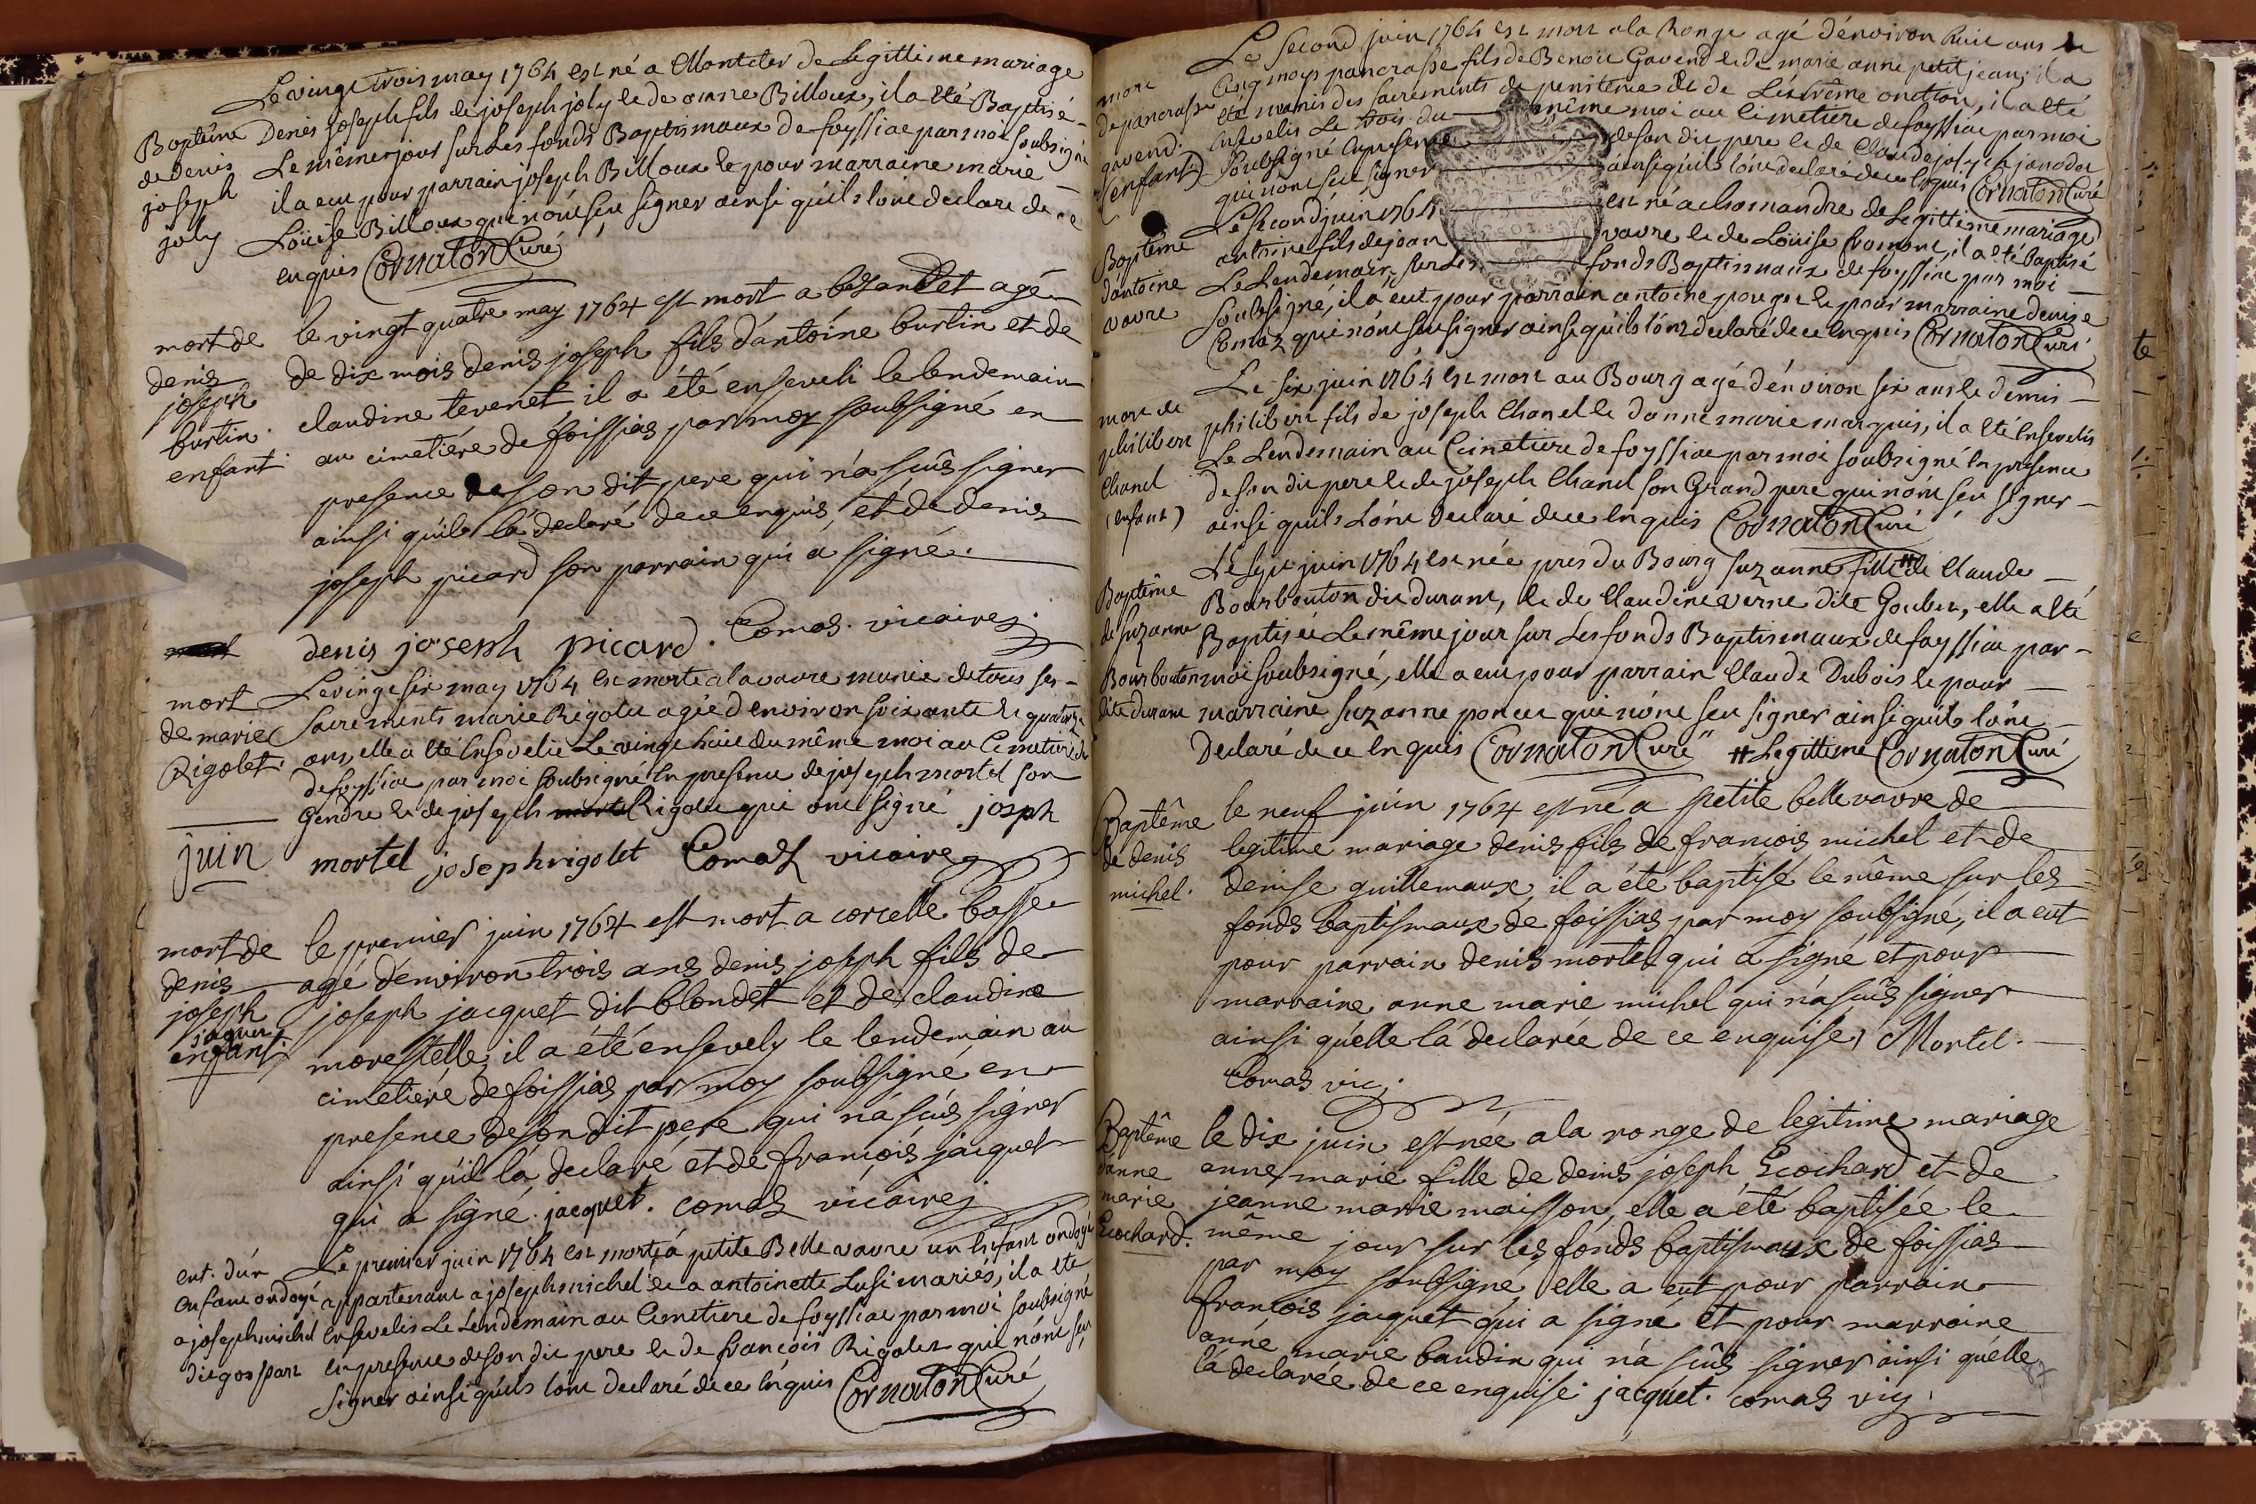 Le vingt trois may 1764 est né a Montcler de Legittime mariage
Baptême
de denis
joseph
joly
Denis joseph fils de joseph joly et de anne Billoux, il a été Baptisé
Le même jour sur Les fonds Baptismaux de foyssiac par moi soubsigné
il a eut pour parrain joseph Billoux et pour marraine marie
Loüise Billoux qui n'ont seu signer ainsi qu'ils l'ont declaré de ce
enquis Cornaton Curé
mort de
denis
joseph
burtin
enfant
le vingt quatre may 1764 est mort a bezandet agé
de dix mois denis joseph fils d'antoine burtin et de
claudine tevenet il a été enseveli le lendemain
au cimetiére de foissias par moy soubsigné en
presence de son dit pere qui n'a sçûs signer
ainsi qu'ils l'a declaré de ce enquis et de denis
joseph picard son parrain qui a signé.
denis joseph picard. Comas. vicaire
mort
de marie
Rigolet
Le vingt six may 1764 est morte a la vavre munie de tous ses
sacrements marie Rigolet agée d'environ soixante et quatorze
ans, elle a été Ensevelie Le vingt huit du même moi au Cimetiere
de foyssiac par moi soubsigné En presence de joseph mortel son
Gendre et de joseph Rigolet qui ont signé joseph
mortel joseph rigolet Comas vicaire
juin
mort de
denis
joseph
jaquet
enfant
le premier juin 1764 est mort a corcelle basse
agé d'environ trois ans denis joseph fils de
joseph jacquet dit blondet et de claudine
morestelle, il a été ensevely le lendemain au
cimetiére de foissias par moy soubsigné en
presence de son dit pere qui n'a sçûs signer
ainsi qu'il l'a declaré et de françois jacquet
qui a signé. jacquet. comas vicaire
ent. d'un
enfant ondoyé
a joseph michel
dit gospart
Le premier juin 1764 est morte a petite Belle vavre un Enfant ondoyé
appartenant a joseph michel et a antoinette Lusi mariés, il a été
Ensevelis Le Lendemain au Cimetiere de foyssiac par moi soubsigné
en presence de son dit pere et de françois Rigolet qui n'ont seu
signer ainsi qu'ils l'ont declaré de ce Enquis Cornaton Curé
Le second juin 1764 est mort a la Ronge agé d'environ huit ans et
mort
de pancrasse
gavend
(enfant)
Cinq moys pancrasse fils de Benoit Gavend et de marie anne petitjean, il a
été munis des sacrements de penitence et de L'extrême onction, il a été
Ensevelis Le trois du même moi au Cimetiere de foyssiac par moi
soubsigné En presence de son dit pere et de Claude joseph janodet
qui n'ont seu signer ainsi qu'ils l'ont declaré de ce Enquis Cornaton Curé
Baptême
d'antoine
vavre
Le second juin 1764 est né a chomandre de Legittime mariage
antoine fils de jean vavre et de Loüise Cromone, il a été Baptisé
Le Lendemain sur Les fonds Baptismaux de foyssiac par moi
soubsigné, il a eut pour parrain antoine pouget et pour marraine denise
Comas qui n'ont seu signer ainsi qu'ils l'ont declaré de ce Enquis Cornaton Curé
mort de
philibert
Chanel
(enfant)
Le six juin 1764 est mort au Bourg agé d'environ six ans et demis
philibert fils de joseph Chanel et d'anne marie marquis, il a été Ensevelis
Le Lendemain au Cimetiere de foyssiac par moi soubsigné En presence
de son dit pere et de joseph Chanel son Grand pere qui n'ont seu signer
ainsi qu'ils L'ont declaré de ce Enquis Cornaton Curé
Baptême
de suzanne
Bourbouton
dite durant
Le sept juin 1764 est née pres du Bourg suzanne fille # de Claude
Bourbouton dit durant, et de Claudine verne dite Goubet, elle a été
Baptisée Le même jour sur Les fonds Baptismaux de foyssiac par
moi soubsigné, elle a eut pour parrain Claude Dubois et pour
marraine suzanne poncet qui n'ont seu signer ainsi qu'ils l'ont
Declaré de ce Enquis Cornaton Curé # Legittime Cornaton Curé
Baptême
de denis
michel.
le neuf juin 1764 est né a petite belle vavre de
legitime mariage denis fils de françois michel et de
denise guillemaux, il a été baptisé le même sur les
fonds baptismaux de foissias par moy soubsigné, il a eut
pour parrain denis mortel qui a signé et pour
marraine anne marie michel qui n'a sçûs signer
ainsi qu'elle l'a declarée de ce enquise, Mortel.
Comas vic.
Baptême
d'anne
marie
Ecochard.
le dix juin est née a la ronge de legitime mariage
anne marie fille de denis joseph Ecochard et de
jeanne marie maisson, elle a été baptisée le
même jour sur les fonds baptismaux de foissias
par moy soubsigné, elle a eut pour parrain
françois jacquet qui a signé et pour marraine
anne marie baudin qui n'a sçûs signer ainsi qu'elle
l'a declarée de ce enquise. jacquet. comas vic.